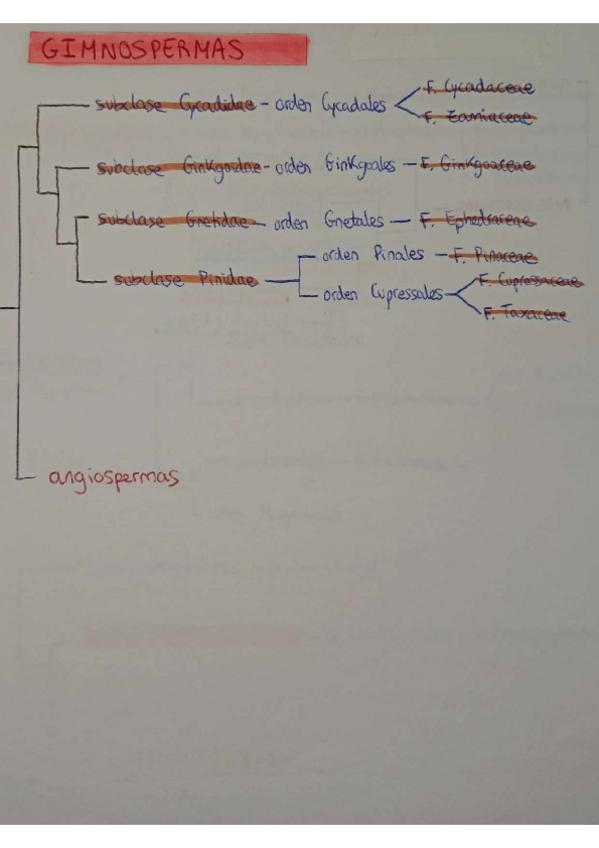 GIMNOSPERMAS
subclase Cycadidae - orden Cycadales
F. Cycadaceae
F. Zamiaceae
subclase Ginkgoidae - orden Ginkgoales - F. Ginkgoaceae
subclase Gnetidae - orden Gnetales - F. Ephedraceae
subclase Pinidae
orden Pinales - F. Pinaceae
orden Cupressales
F. Cupressaceae
F. Taxaceae
angiospermas